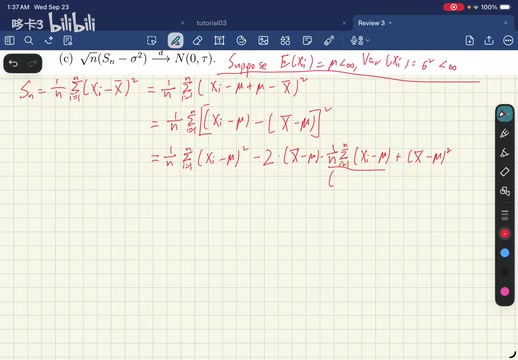 1:37 AM Wed Sep 23
100%
哆卡3 bilibili
tutorial03
Review 3
(c) √n(Sₙ − σ²) →ᵈ N(0, τ).
Suppose E(Xᵢ) = μ < ∞, Var(Xᵢ) = σ² < ∞
Sₙ = 1/n Σᵢ₌₁ⁿ (Xᵢ − X̄)² = 1/n Σᵢ₌₁ⁿ (Xᵢ − μ + μ − X̄)²
= 1/n Σᵢ₌₁ⁿ [(Xᵢ − μ) − (X̄ − μ)]²
= 1/n Σᵢ₌₁ⁿ (Xᵢ − μ)² − 2 · (X̄ − μ) · 1/n Σᵢ₌₁ⁿ (Xᵢ − μ) + (X̄ − μ)²
(